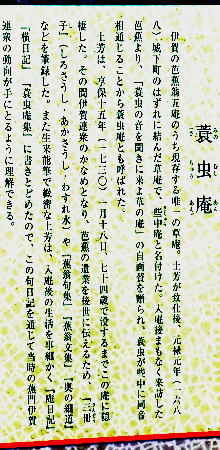 蓑虫庵
みの むし あん
さ ちゅう あん
伊賀の芭蕉翁五庵のうち現存する唯一の草庵。土芳が致仕後、元禄元年(一六八
八)城下町のはずれに結んだ草庵で些中庵と名付けた。入庵後まもなく来訪した
芭蕉より、「蓑虫の音を聞きに来よ草の庵」の自画賛を贈られ、蓑虫が些中に同音
相通じることから蓑虫庵とも呼ばれた。
土芳は、享保十五年(一七三〇)一月十八日、七十四歳で没するまでこの庵に隠
棲した。その間伊賀連衆のかなめとなり、芭蕉の遺業を後世に伝えるため、『三冊
子』(しろさうし、あかさうし、わすれ水)や『蕉翁句集』『蕉翁文集』『奥の細道』
などを筆録した。また生来能筆で緻密な土芳は、入庵後の生活を事細かく『庵日記』
『横日記』『蓑虫庵集』に書きとどめたので、この句日記を通じて当時の蕉門伊賀
連衆の動向が手にとるように理解できる。